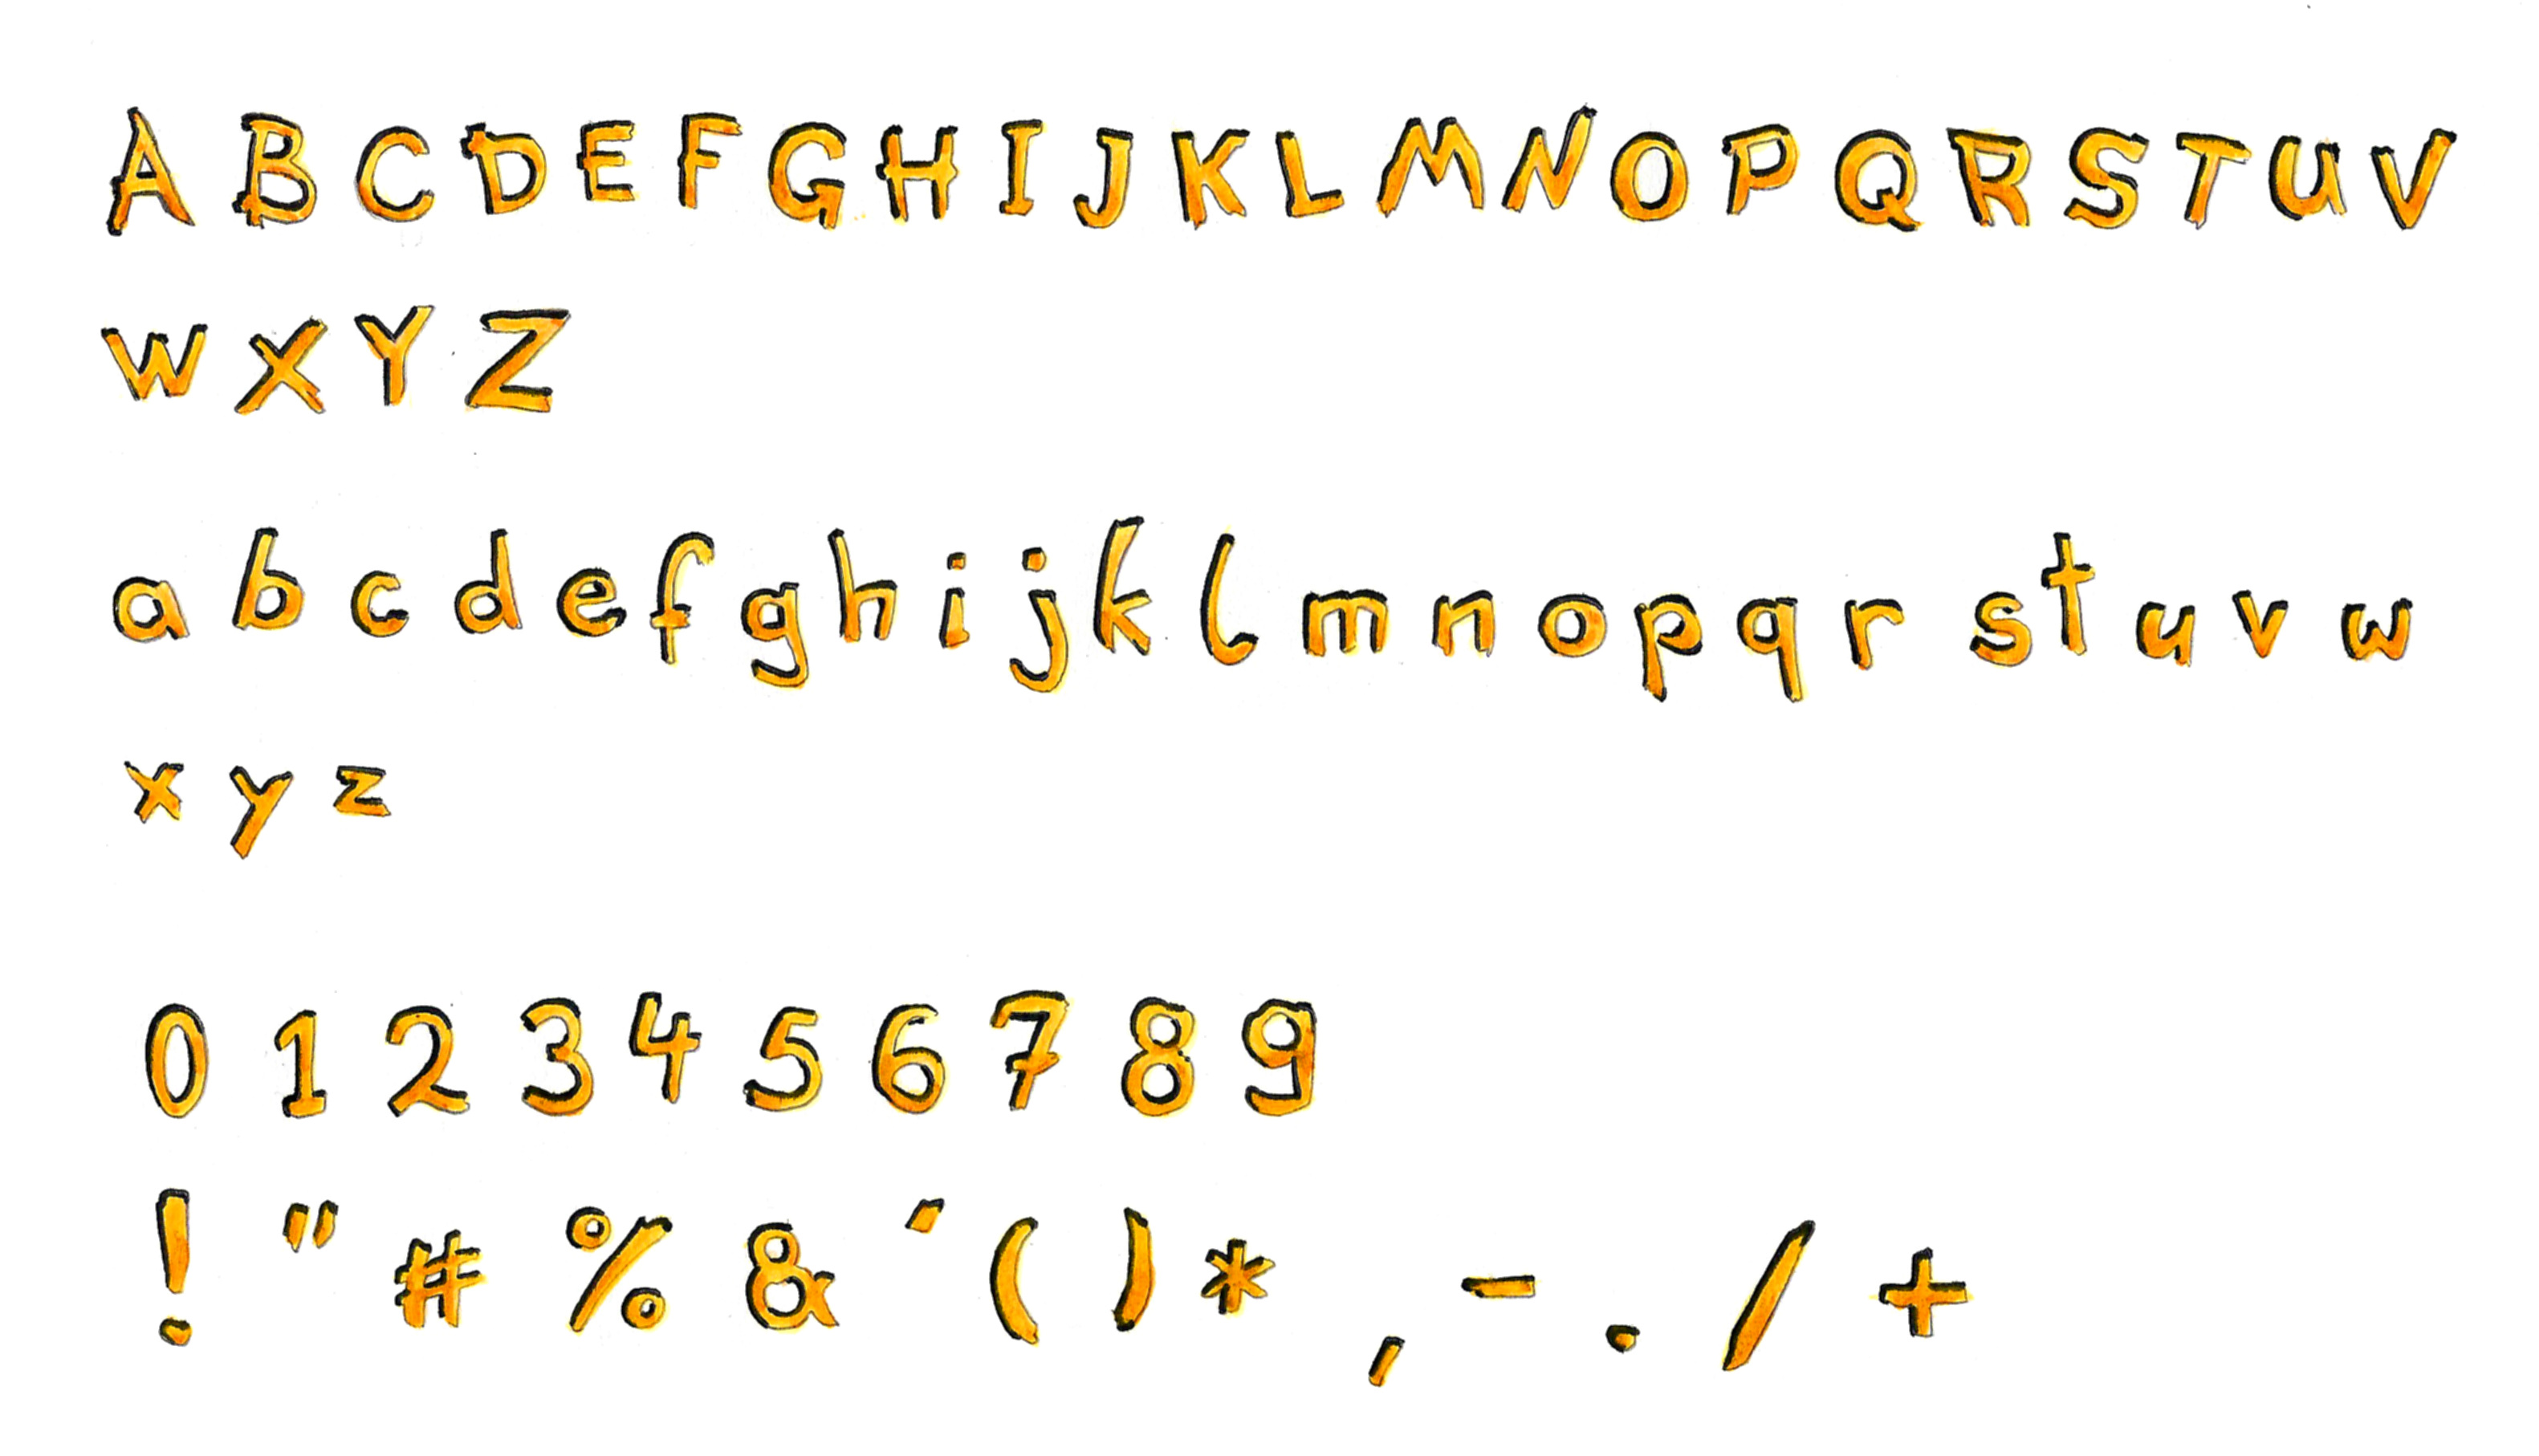 A B C D E F G H I J K L M N O P Q R S T U V
W X Y Z
a b c d e f g h i j k l m n o p q r s t u v w
x y z
0 1 2 3 4 5 6 7 8 9
! " # % & ´ ( ) * , - . / +